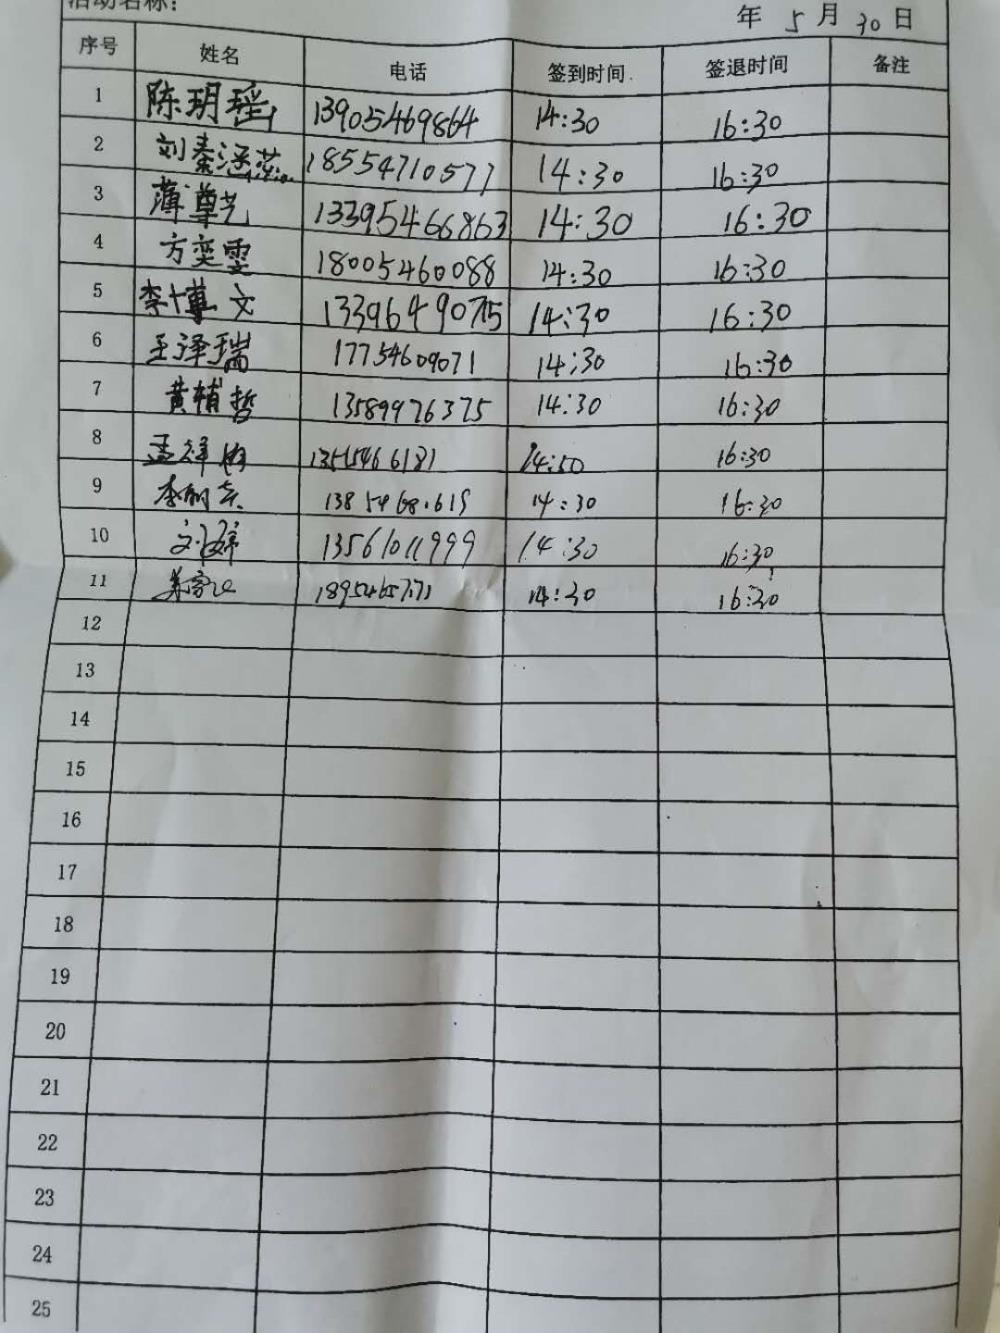 活动名称：
年 5 月 30 日
序号 姓名 电话 签到时间 签退时间 备注
1 陈玥瑶 13905469864 14:30 16:30
2 刘秦涵 18554710577 14:30 16:30
3 薄尊艺 13395466863 14:30 16:30
4 方奕雯 18005460088 14:30 16:30
5 李博文 14:30 16:30
6 王泽瑞 17754609071 14:30 16:30
7 黄辅哲 13589976375 14:30 16:30
8 孟祥 16:30
9 李 14:30 16:30
10 13561011999 14:30 16:30
11 14:30 16:30
12
13
14
15
16
17
18
19
20
21
22
23
24
25